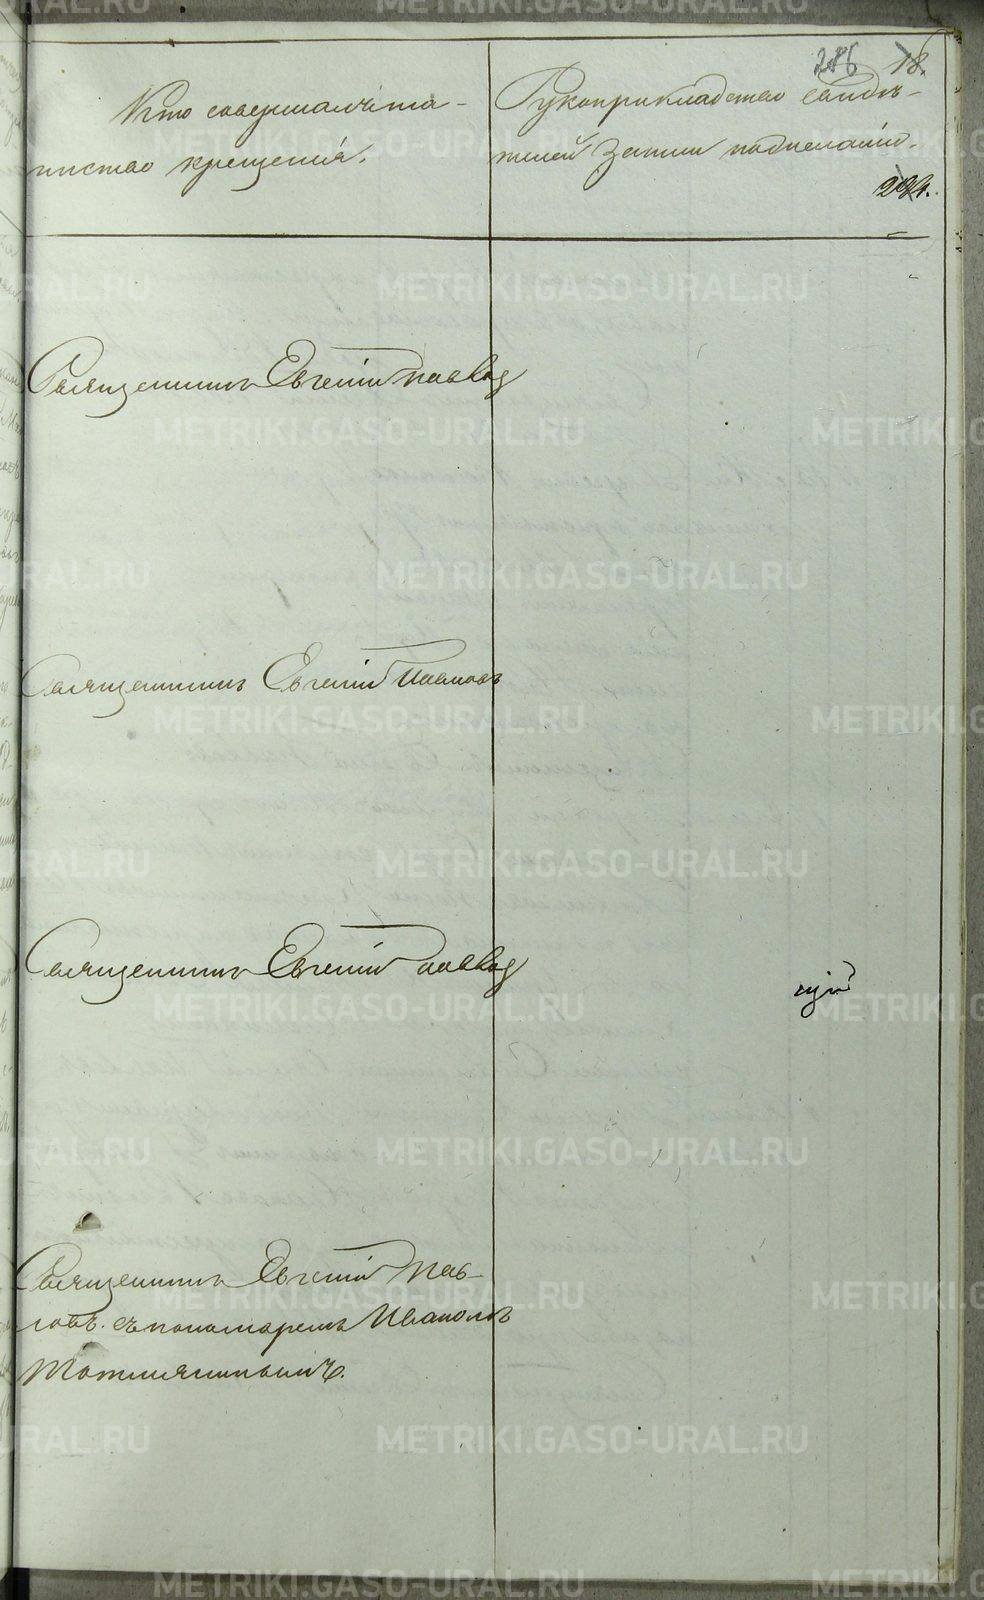 286 18.
Кто совершалъ та-
инство крещенія.
Рукоприкладство свидѣ-
телей записи по желанію.
Священникъ Евгеній Павлов
Священникъ Евгеній Павловъ
Священникъ Евгеній Павлов
Священникъ Евгеній Пав-
ловъ. съ пономаремъ Иваномъ
METRIKI.GASO-URAL.RU